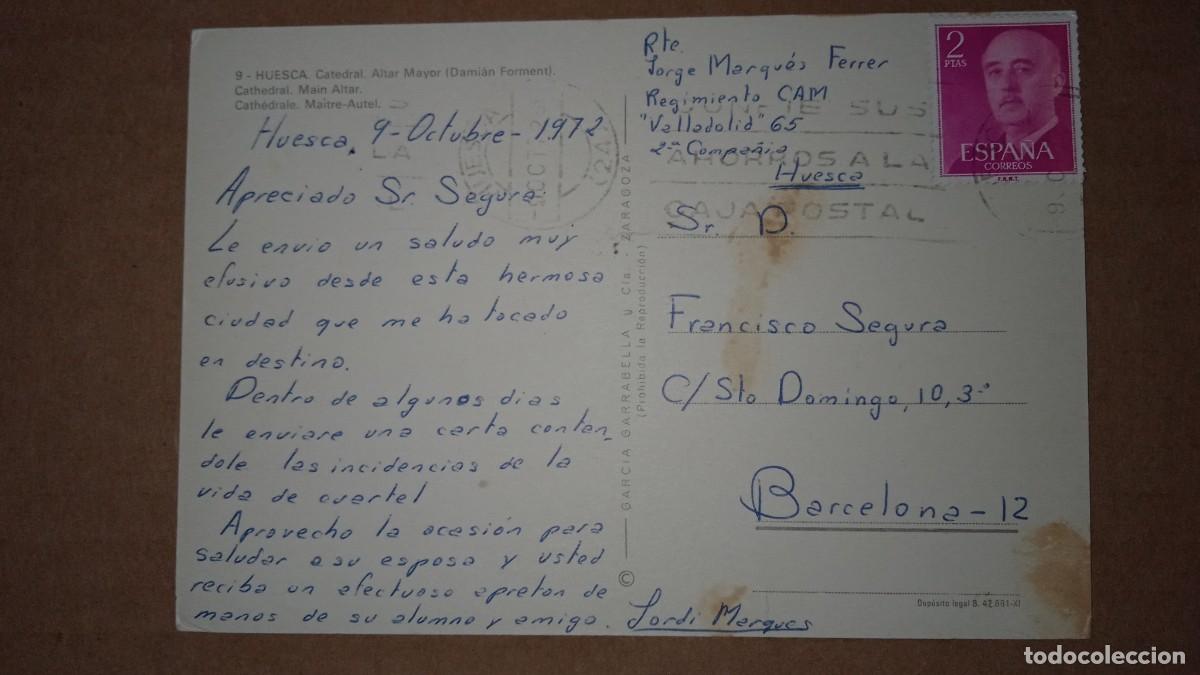 9 - HUESCA. Catedral. Altar Mayor (Damián Forment).
Cathedral. Main Altar.
Cathédrale. Maître-Autel.
Huesca, 9-Octubre-1972
Apreciado Sr. Segura
Le envio un saludo muy
efusivo desde esta hermosa
ciudad que me ha tocado
en destino.
Dentro de algunos dias
le enviare una carta conten-
dole las incidencias de la
vida de cuartel
Aprovecho la ocasión para
saludar a su esposa y usted
reciba un afectuoso apreton de
manos de su alumno y amigo. Jordi Marques
GARCIA GARRABELLA y Cía. - ZARAGOZA
(Prohibida la Reproducción)
©
Rte.
Jorge Marqués Ferrer
Regimiento CAM
"Valladolid" 65
2ª Compañia
Huesca
2
PTAS
ESPAÑA
CORREOS
F.N.M.T.
SUS
AHORROS A LA
CAJA POSTAL
Sr. D.
Francisco Segura
C/ Sto Domingo, 10, 3º
Barcelona-12
Depósito legal B. 42.681-XI
todocoleccion